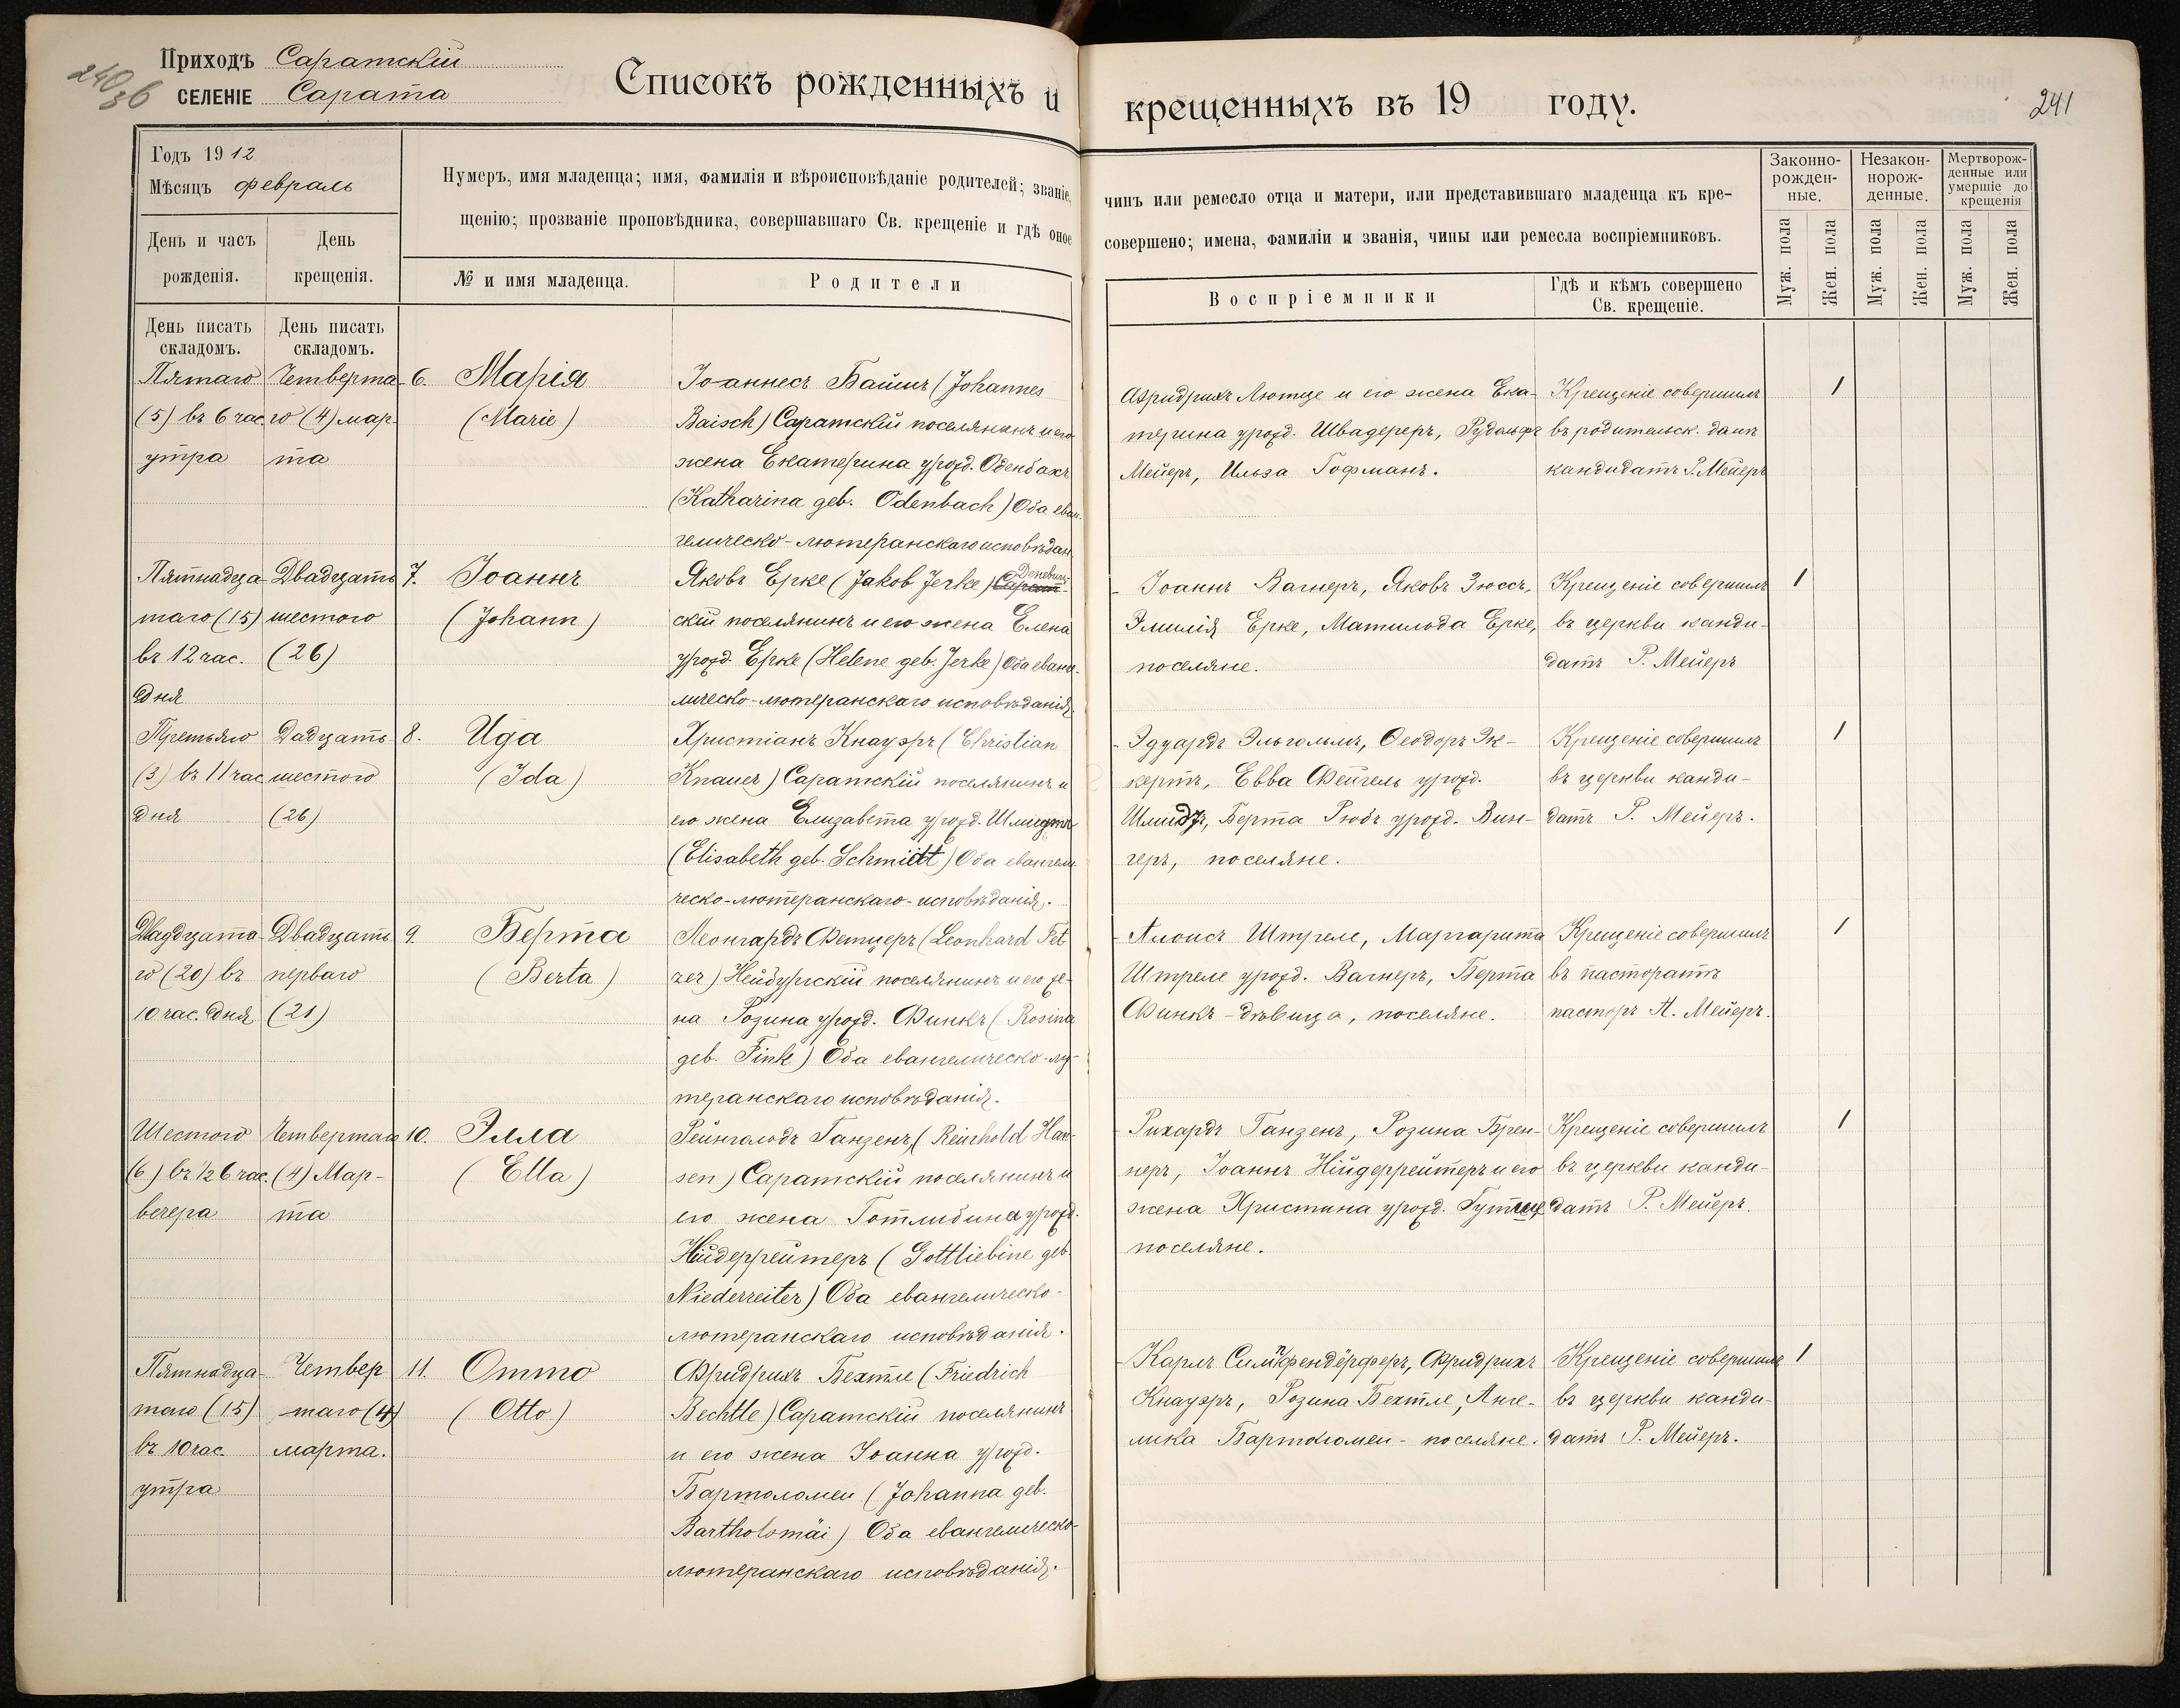 240
36
Приходъ Саратскій
СЕЛЕНІЕ Сарата
Списокъ рожденныхъ и
крещенныхъ въ 19 году.
241
Годъ 1912
Мѣсяцъ февраль
День и часъ рожденія.
День крещенія.
Нумеръ, имя младенца; имя, фамилія и вѣроисповѣданіе родителей; званіе,
щенію; прозваніе проповѣдника, совершавшаго Св. крещеніе и гдѣ оное
№ и имя младенца.
Родители
чинъ или ремесло отца и матери, или представившаго младенца къ кре-
совершено; имена, фамиліи и званія, чины или ремесла воспріемниковъ.
Воспріемники
Гдѣ и кѣмъ совершено
Св. крещеніе.
Законно-
рожден-
ные.
Незакон-
норож-
денные.
Мертворож-
денные или
умершіе до
крещенія
Муж. пола
Жен. пола
Муж. пола
Жен. пола
Муж. пола
Жен. пола
День писать
складомъ.
День писать
складомъ.
Пятаго
(5) въ 6 час.
утра
Четверта-
го (4) мар-
та
6. Марія
(Marie)
Іоаннесъ Байшъ (Johannes
Baisch) Саратскій поселянинъ и его
жена Екатерина урожд. Оденбахъ
(Katharina geb. Odenbach) Оба еван-
гелическо-лютеранскаго исповѣдан.
Фридрихъ Лютце и его жена Ека-
терина урожд. Швадереръ, Рудольфъ
Мейеръ, Ильза Гофманъ.
Крещеніе совершилъ
въ родительск. домѣ
кандидатъ Р. Мейеръ
1
Пятнадца-
таго (15)
въ 12 час.
дня
Двадцать
шестого
(26)
7. Іоаннъ
(Johann)
Яковъ Ерке (Jakob Jerke) Сарат-
Деневиц-
скій поселянинъ и его жена Елена
урожд. Ерке (Helene geb. Jerke) Оба еванге-
лическо-лютеранскаго исповѣданія.
Іоаннъ Вагнеръ, Яковъ Зюссъ,
Эмилія Ерке, Матильда Ерке,
поселяне.
Крещеніе совершилъ
въ церкви канди-
датъ Р. Мейеръ
1
Третьяго
(3) въ 11 час
дня
Дадцать
шестого
(26)
8. Ида
(Ida)
Христіанъ Кнауэръ (Christian
Knauer) Саратскій поселянинъ и
его жена Елизавета урожд. Шмидтъ
(Elisabeth geb. Schmidt) Оба евангели-
ческо-лютеранскаго исповѣданія.
Эдуардъ Эльгольмъ, Ѳеодоръ Эк-
кертъ, Евва Фейгель урожд.
Шмидтъ, Берта Рюбъ урожд. Вин-
геръ, поселяне.
Крещеніе совершилъ
въ церкви канди-
датъ Р. Мейеръ.
1
Двадцата-
го (20) въ
10 час. дня
Двадцать
перваго
(21)
9. Берта
(Berta)
Леонгардъ Фетцеръ (Leonhard Fet
zer) Нейбургскій поселянинъ и его же-
на Розина урожд. Финкъ (Rosina
geb. Fink) Оба евангелическо-лю-
теранскаго исповѣданія.
Алоисъ Штреле, Маргарита
Штреле урожд. Вагнеръ, Берта
Финкъ - дѣвица, поселяне.
Крещеніе совершилъ
въ пасторатѣ
пасторъ А. Мейеръ.
1
Шестого
(6) въ ½ 6 час.
вечера
Четвертаго
(4) Мар-
та
10. Элла
(Ella)
Рейнгольдъ Ганзенъ (Reinhold Han-
sen) Саратскій поселянинъ и
его жена Готлибина урожд.
Нидеррейтеръ (Gottliebine geb.
Niederreiter) Оба евангелическо-
лютеранскаго исповѣданія.
Рихардъ Ганзенъ, Розина Брен-
неръ, Іоаннъ Нидеррейтеръ и его
жена Христина урожд.
поселяне.
Крещеніе совершилъ
въ церкви канди-
датъ Р. Мейеръ.
1
Пятнадца-
таго (15)
въ 10 час.
утра
Четвер
таго (4)
марта.
11. Отто
(Otto)
Фридрихъ Бехтле (Friedrich
Bechtle) Саратскій поселянинъ
и его жена Іоанна урожд.
Бартоломеи (Johanna geb.
Bartholomäi) Оба евангелическо-
лютеранскаго исповѣданія.
Карлъ Симпфендёрферъ, Фридрихъ
Кнауэръ, Розина Бехтле, Анге-
лика Бартоломеи - поселяне.
Крещеніе совершилъ
въ церкви канди-
датъ Р. Мейеръ.
1